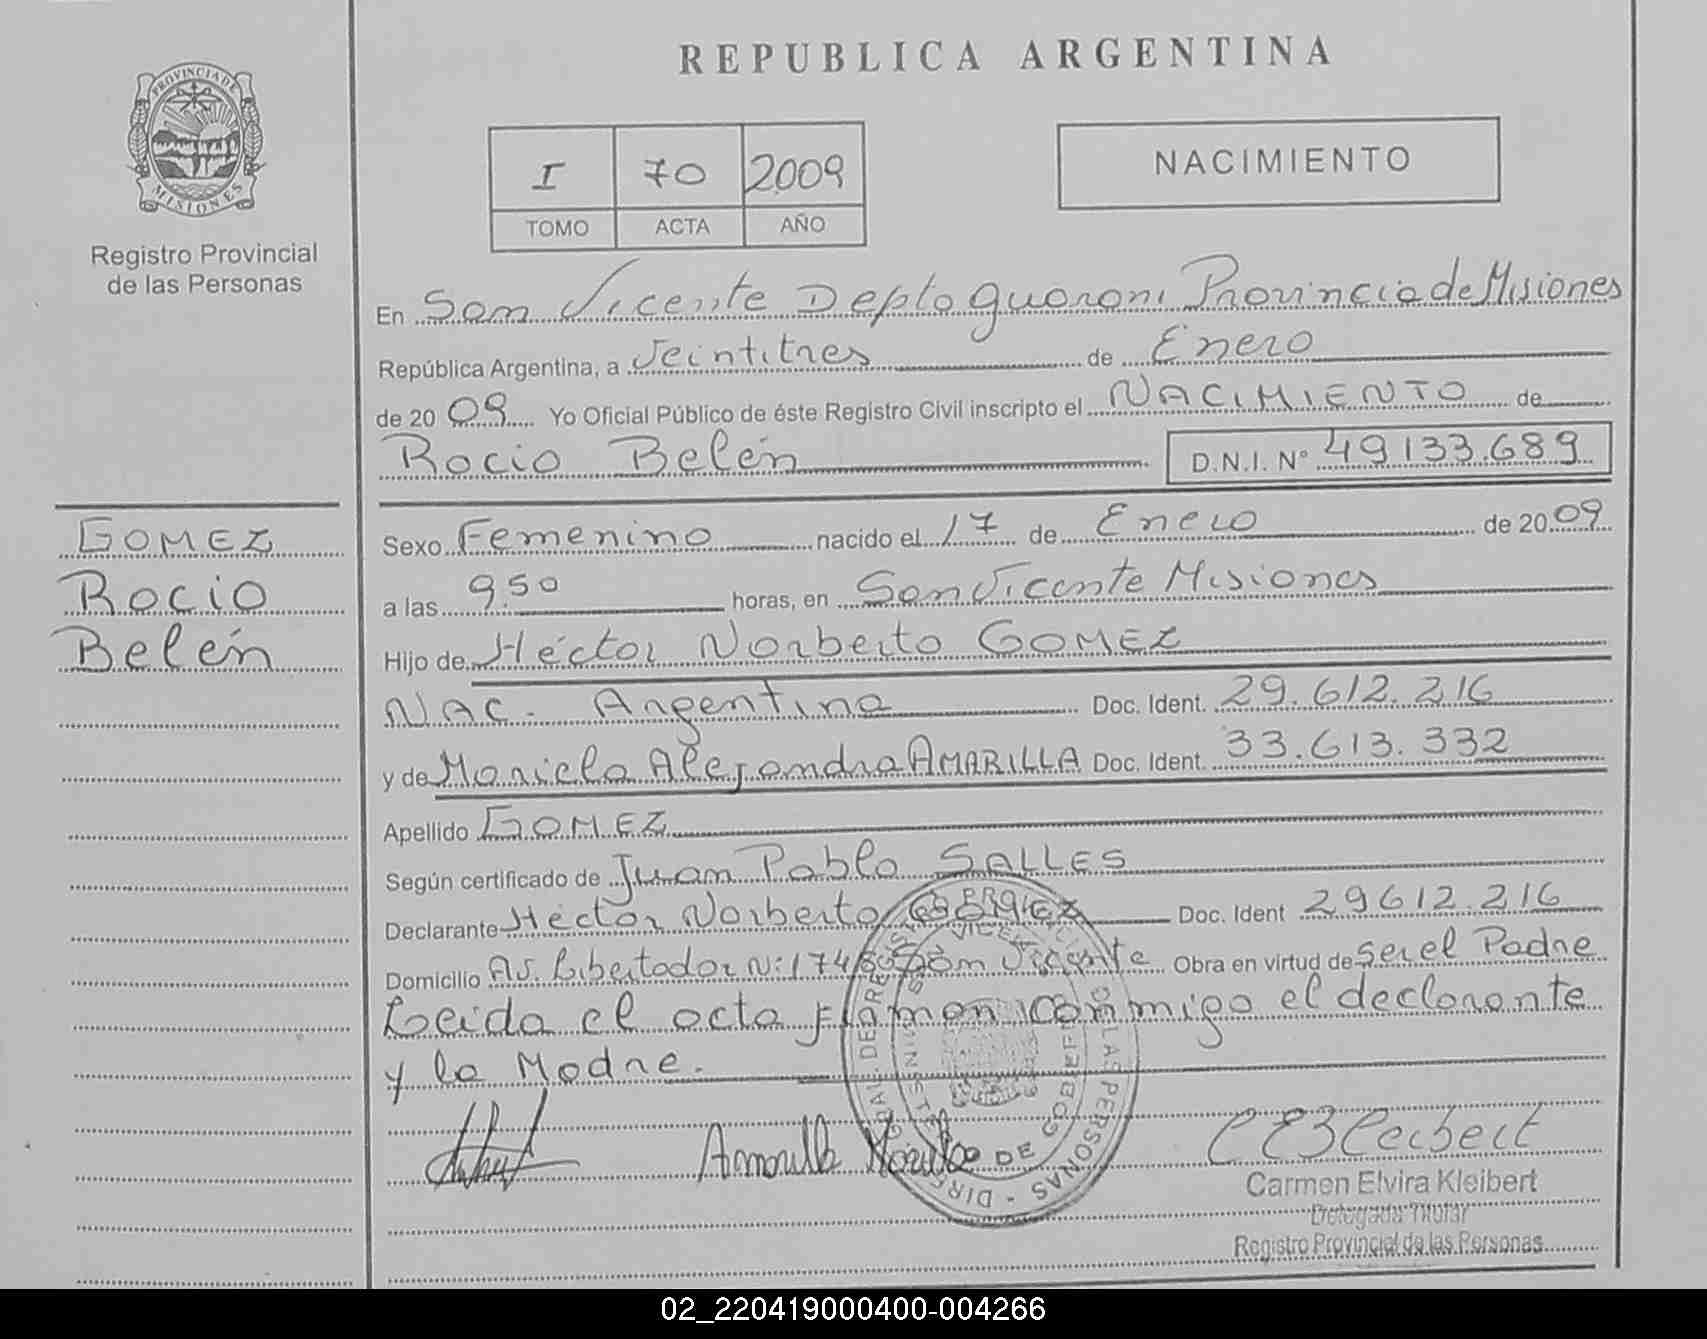 REPUBLICA ARGENTINA
PROVINCIA DE MISIONES
Registro Provincial
de las Personas
I 70 2009
TOMO ACTA AÑO
NACIMIENTO
En San Vicente Depto Guarani Provincia de Misiones
República Argentina, a Veintitres de Enero
de 2009 Yo Oficial Público de éste Registro Civil inscripto el NACIMIENTO de
Rocio Belén D.N.I. N° 49133.689
GOMEZ
Rocio
Belén
Sexo Femenino nacido el 17 de Enero de 2009
a las 9.50 horas, en San Vicente Misiones
Hijo de Héctor Norberto GOMEZ
NAC. Argentina Doc. Ident. 29.612.216
y de Mariela Alejandra AMARILLA Doc. Ident. 33.613.332
Apellido GOMEZ
Según certificado de Juan Pablo SALLES
Declarante Héctor Norberto GOMEZ Doc. Ident 29612.216
Domicilio Av. Libertador N: San Vicente Obra en virtud de ser el Padre
Leida el acta firman conmigo el declarante
y la Madre.
Amarilla
Carmen Elvira Kleibert
Delegada Titular
Registro Provincial de las Personas
02_220419000400-004266